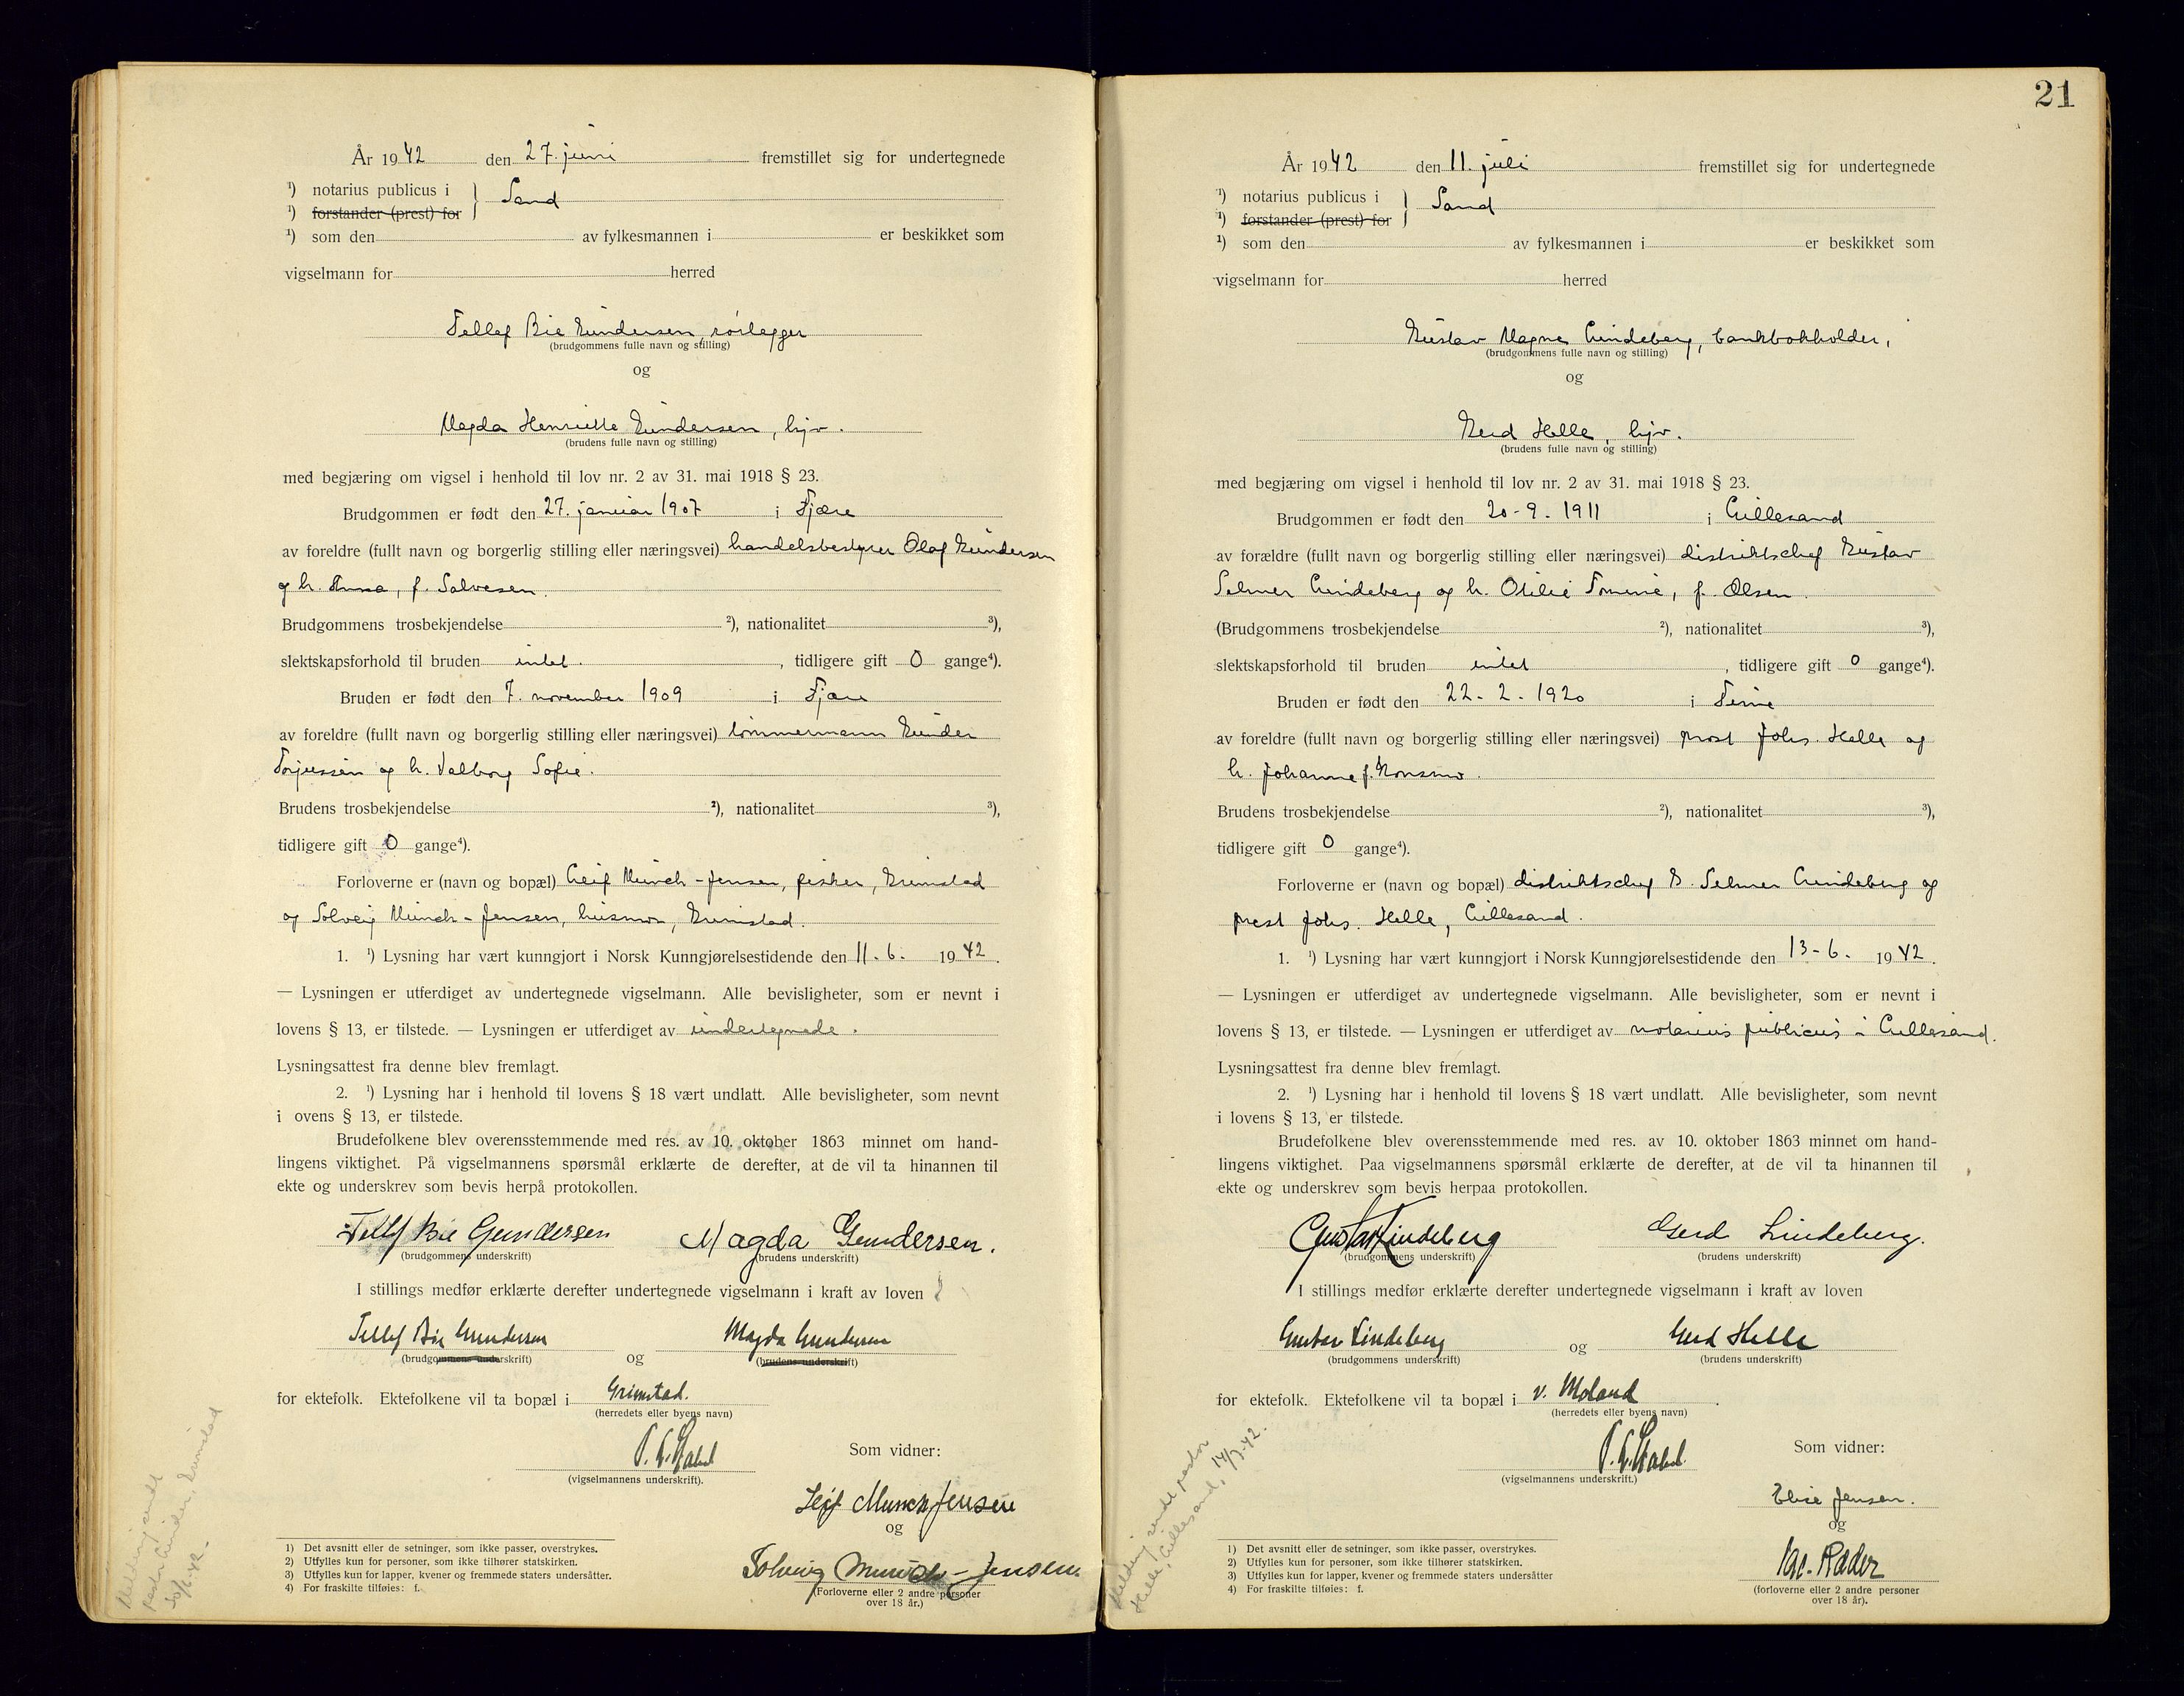 År 1942 den 27. juni fremstillet sig for undertegnede
¹) notarius publicus i } Sand
¹) forstander (prest) for
¹) som den av fylkesmannen i er beskikket som
vigselmann for herred
Tellef Bie Gundersen, rørlegger
(brudgommens fulle navn og stilling)
og
Magda Henriette Gundersen, hjv.
(brudens fulle navn og stilling)
med begjæring om vigsel i henhold til lov nr. 2 av 31. mai 1918 § 23.
Brudgommen er født den 27. januar 1907 i Fjære
av foreldre (fullt navn og borgerlig stilling eller næringsvei) handelsbestyrer Olaf Gundersen
og h. Anna, f. Salvesen.
Brudgommens trosbekjendelse ²), nationalitet ³),
slektskapsforhold til bruden intet. , tidligere gift 0 gange⁴).
Bruden er født den 7. november 1909 i Fjære
av foreldre (fullt navn og borgerlig stilling eller næringsvei) tømmermann Gunder
Torjussen og h. Valborg Sofie.
Brudens trosbekjendelse ²), nationalitet ³),
tidligere gift 0 gange⁴).
Forloverne er (navn og bopæl) Leif Munch-Jensen, fisker, Grimstad
og Solveig Munch-Jensen, husmor, Grimstad.
1. ¹) Lysning har vært kunngjort i Norsk Kunngjørelsestidende den 11.-6.- 1942.
— Lysningen er utferdiget av undertegnede vigselmann. Alle bevisligheter, som er nevnt i
lovens § 13, er tilstede. — Lysningen er utferdiget av undertegnede.
Lysningsattest fra denne blev fremlagt.
2. ¹) Lysning har i henhold til lovens § 18 vært undlatt. Alle bevisligheter, som nevnt
i ovens § 13, er tilstede.
Brudefolkene blev overensstemmende med res. av 10. oktober 1863 minnet om hand-
lingens viktighet. På vigselmannens spørsmål erklærte de derefter, at de vil ta hinannen til
ekte og underskrev som bevis herpå protokollen.
Tellf Bie Gundersen Magda Gundersen.
(brudgommens underskrift) (brudens underskrift)
I stillings medfør erklærte derefter undertegnede vigselmann i kraft av loven
Tellef Bie Gundersen og Magda Gundersen
(brudgommens underskrift) (brudens underskrift)
for ektefolk. Ektefolkene vil ta bopæl i Grimstad.
(herredets eller byens navn)
(vigselmannens underskrift).
Som vidner:
Leif Munch Jensen
og
Solveig Munch-Jensen.
(Forloverne eller 2 andre personer
over 18 år.)
1) Det avsnitt eller de setninger, som ikke passer, overstrykes.
2) Utfylles kun for personer, som ikke tilhører statskirken.
3) Utfylles kun for lapper, kvener og fremmede staters undersåtter.
4) For fraskilte tilføies: f.
Melding sendt
Grimstad
21
År 1942 den 11. juli fremstillet sig for undertegnede
¹) notarius publicus i } Sand
¹) forstander (prest) for
¹) som den av fylkesmannen i er beskikket som
vigselmann for herred
Gustav Magne Lindeberg, bankbokholder,
(brudgommens fulle navn og stilling)
og
Gerd Helle, hjv.
(brudens fulle navn og stilling)
med begjæring om vigsel i henhold til lov nr. 2 av 31. mai 1918 § 23.
Brudgommen er født den 20-9-1911 i Lillesand
av forældre (fullt navn og borgerlig stilling eller næringsvei) distriktschef Gustav
Selmer Lindeberg og h. Otilie Tomine, f. Olsen.
(Brudgommens trosbekjendelse ²), nationalitet ³),
slektskapsforhold til bruden intet , tidligere gift 0 gange⁴).
Bruden er født den 22-2-1920 i
av foreldre (fullt navn og borgerlig stilling eller næringsvei) prost Johs. Helle og
h. Johanne f. Monsmo.
Brudens trosbekjendelse ²), nationalitet ³),
tidligere gift 0 gange⁴).
Forloverne er (navn og bopæl) distriktschef G. Selmer Lindeberg og
prest Johs. Helle, Lillesand.
1. ¹) Lysning har vært kunngjort i Norsk Kunngjørelsestidende den 13-6.- 1942.
— Lysningen er utferdiget av undertegnede vigselmann. Alle bevisligheter, som er nevnt i
lovens § 13, er tilstede. — Lysningen er utferdiget av notarius publicus i Lillesand.
Lysningsattest fra denne blev fremlagt.
2. ¹) Lysning har i henhold til lovens § 18 vært undlatt. Alle bevisligheter, som nevnt
i lovens § 13, er tilstede.
Brudefolkene blev overensstemmende med res. av 10. oktober 1863 minnet om hand-
lingens viktighet. Paa vigselmannens spørsmål erklærte de derefter, at de vil ta hinannen til
ekte og underskrev som bevis herpaa protokollen.
Gustav Lindeberg Gerd Lindeberg.
(brudgommens underskrift) (brudens underskrift)
I stillings medfør erklærte derefter undertegnede vigselmann i kraft av loven
Gustav Lindeberg og Gerd Helle
(brudgommens underskrift) (brudens underskrift)
for ektefolk. Ektefolkene vil ta bopæl i v. Moland.
(herredets eller byens navn)
(vigselmannens underskrift.)
Som vidner:
Elise Jensen.
og
Ræder
(forloverne eller 2 andre personer
over 18 år).
1) Det avsnitt eller de setninger, som ikke passer, overstrykes.
2) Utfylles kun for personer, som ikke tilhører statskirken.
3) Utfylles kun for lapper, kvener og fremmede staters undersåtter
4) For fraskilte tilføies: f.
Melding sendt pastor
Helle, Lillesand, 14/7-42.